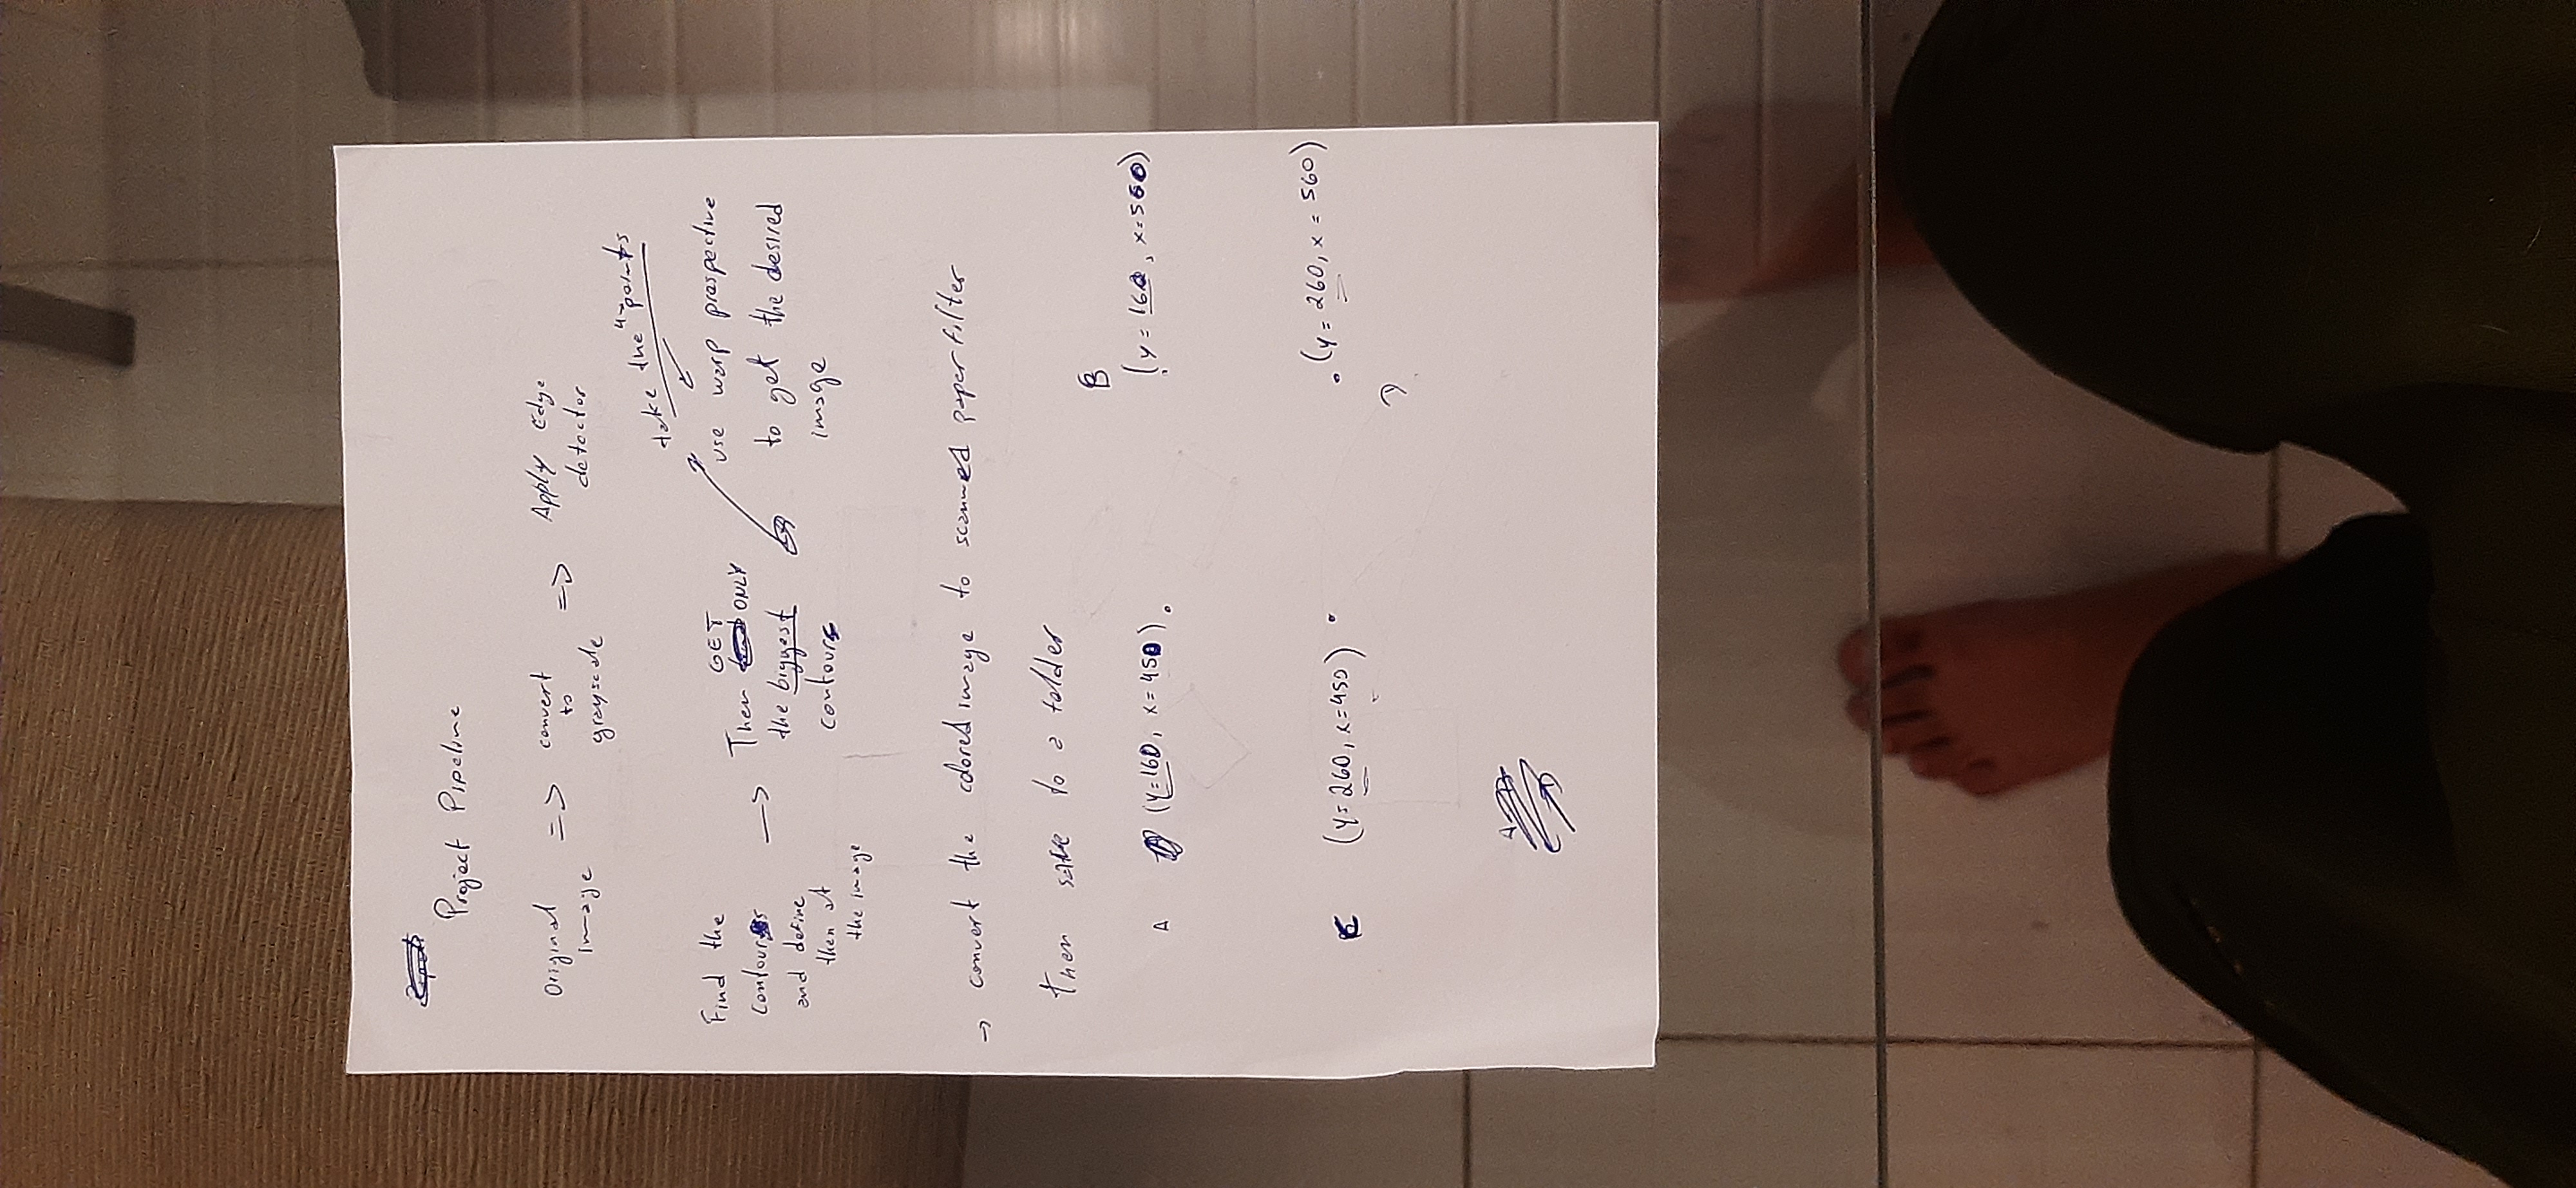 Project Pipeline
Original image => convert to grayscale => Apply Edge detector
take the 4 points
Find the contours and define then at the image → Then GET ONLY the biggest contours
use warp prespective to get the desired image
→ convert the colored image to scanned paper filter
then save to a folder
A (y=160, x=450) .
B
(y=160, x=560)
C (y=260, x=450) .
. (y=260, x=560)
D